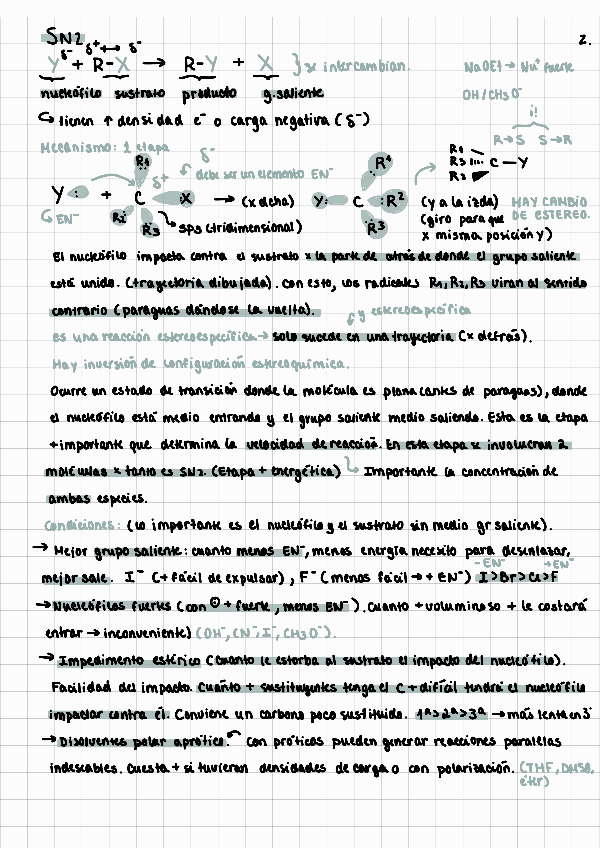 SN2
2.
δ⁻ δ⁺ δ⁻
Y + R-X → R-Y + X } se intercambian. NaOEt → Nu⁺ fuerte
nucleófilo sustrato producto g.saliente OH/CH3O⁻
↳ tienen ↑ densidad e⁻ o carga negativa (δ⁻) i!
R→S S→R
Mecanismo: 1 etapa
δ⁻
debe ser un elemento EN⁻
R1 R3 R2 C - Y
R1 δ⁺
Y: + C X → (x dcha) Y: C :R² R⁴ (y a la izda) HAY CAMBIO
↳ EN⁻ R2 R3 ↳ sp3 (tridimensional) R3 (giro para que DE ESTEREO.
x misma posición y)
El nucleófilo impacta contra el sustrato x la parte de atrás de donde el grupo saliente
está unido. (trayectoria dibujada). Con esto, los radicales R1,R2,R3 viran al sentido
contrario (paraguas dándose la vuelta).
y estereoespecífica
Es una reacción estereoespecífica → solo sucede en una trayectoria (x detrás).
Hay inversión de configuración estereoquímica.
Ocurre un estado de transición donde la molécula es plana (antes de paraguas), donde
el nucleófilo está medio entrando y el grupo saliente medio saliendo. Esta es la etapa
+importante que determina la velocidad de reacción. En esta etapa se involucran 2
moléculas x tanto es SN2. (Etapa + energética) ↳ Importante la concentración de
ambas especies.
Condiciones: (lo importante es el nucleófilo y el sustrato sin medio gr saliente).
→ Mejor grupo saliente: cuanto menos EN⁻, menos energía necesito para desenlazar,
-EN⁻ +EN⁻
mejor sale. I⁻ (+ fácil de expulsar), F⁻ (menos fácil → + EN⁻) I>Br>Cl>F
→ Nucleófilos fuertes (con ⊖ + fuerte, menos EN⁻). Cuanto + voluminoso + le costará
entrar → inconveniente) (OH⁻, CN⁻, I⁻, CH3O⁻).
→ Impedimento estérico (cuanto le estorba al sustrato el impacto del nucleófilo).
Facilidad del impacto. Cuanto + sustituyentes tenga el C + difícil tendrá el nucleófilo
impactar contra él. Conviene un carbono poco sustituido. 1ª>2ª>3ª → más lenta en 3ª
→ Disolventes polar aprótico. Con próticos pueden generar reacciones paralelas
indeseables. Cuesta + si tuvieran densidades de carga o con polarización. (THF, DMSO,
éter)